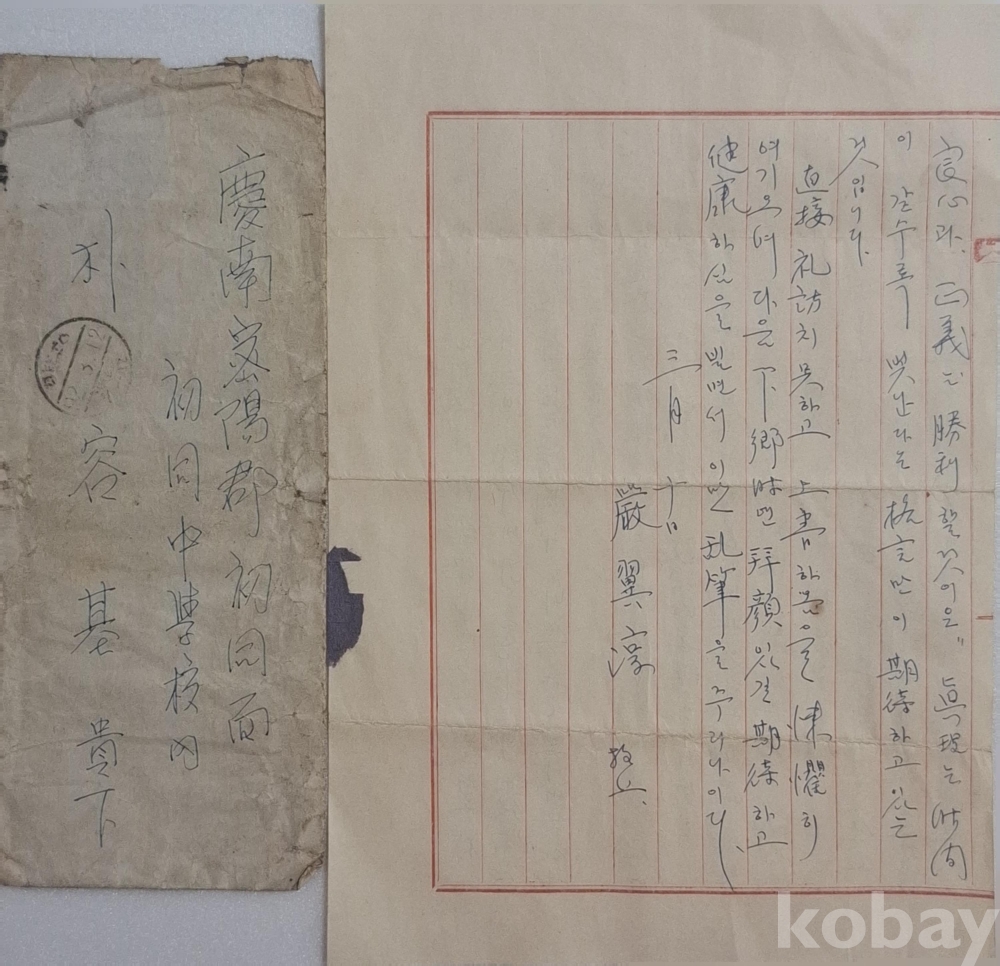 慶南密陽郡 初同面
初同中學校內
朴容基 貴下
良心과 正義는 勝利할 것이은" 眞理는 時間
이 갈수록 빛난다는 格言만이 期待하고 있는
것입니다.
直接 礼訪치 못하고 上書하음을 悚懼히
여기오며 다음 下鄕時면 拜顔있길 期待하고
健康하심을 빌면서 이만 乱筆을 주리나이다.
三月 十日
嚴翼淳 敬上
kobay